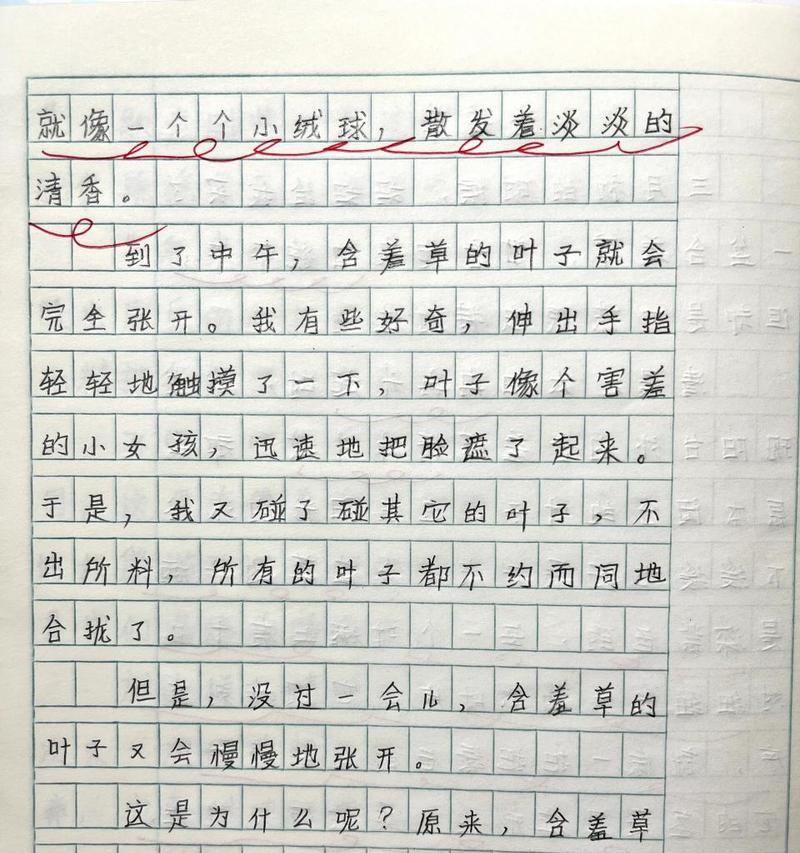 就像一个个小绒球，散发着淡淡的
清香。
到了中午，含羞草的叶子就会
完全张开。我有些好奇，伸出手指
轻轻地触摸了一下，叶子像个害羞
的小女孩，迅速地把脸遮了起来。
于是，我又碰了碰其它的叶子，不
出所料，所有的叶子都不约而同地
合拢了。
但是，没过一会儿，含羞草的
叶子又会慢慢地张开。
这是为什么呢？原来，含羞草